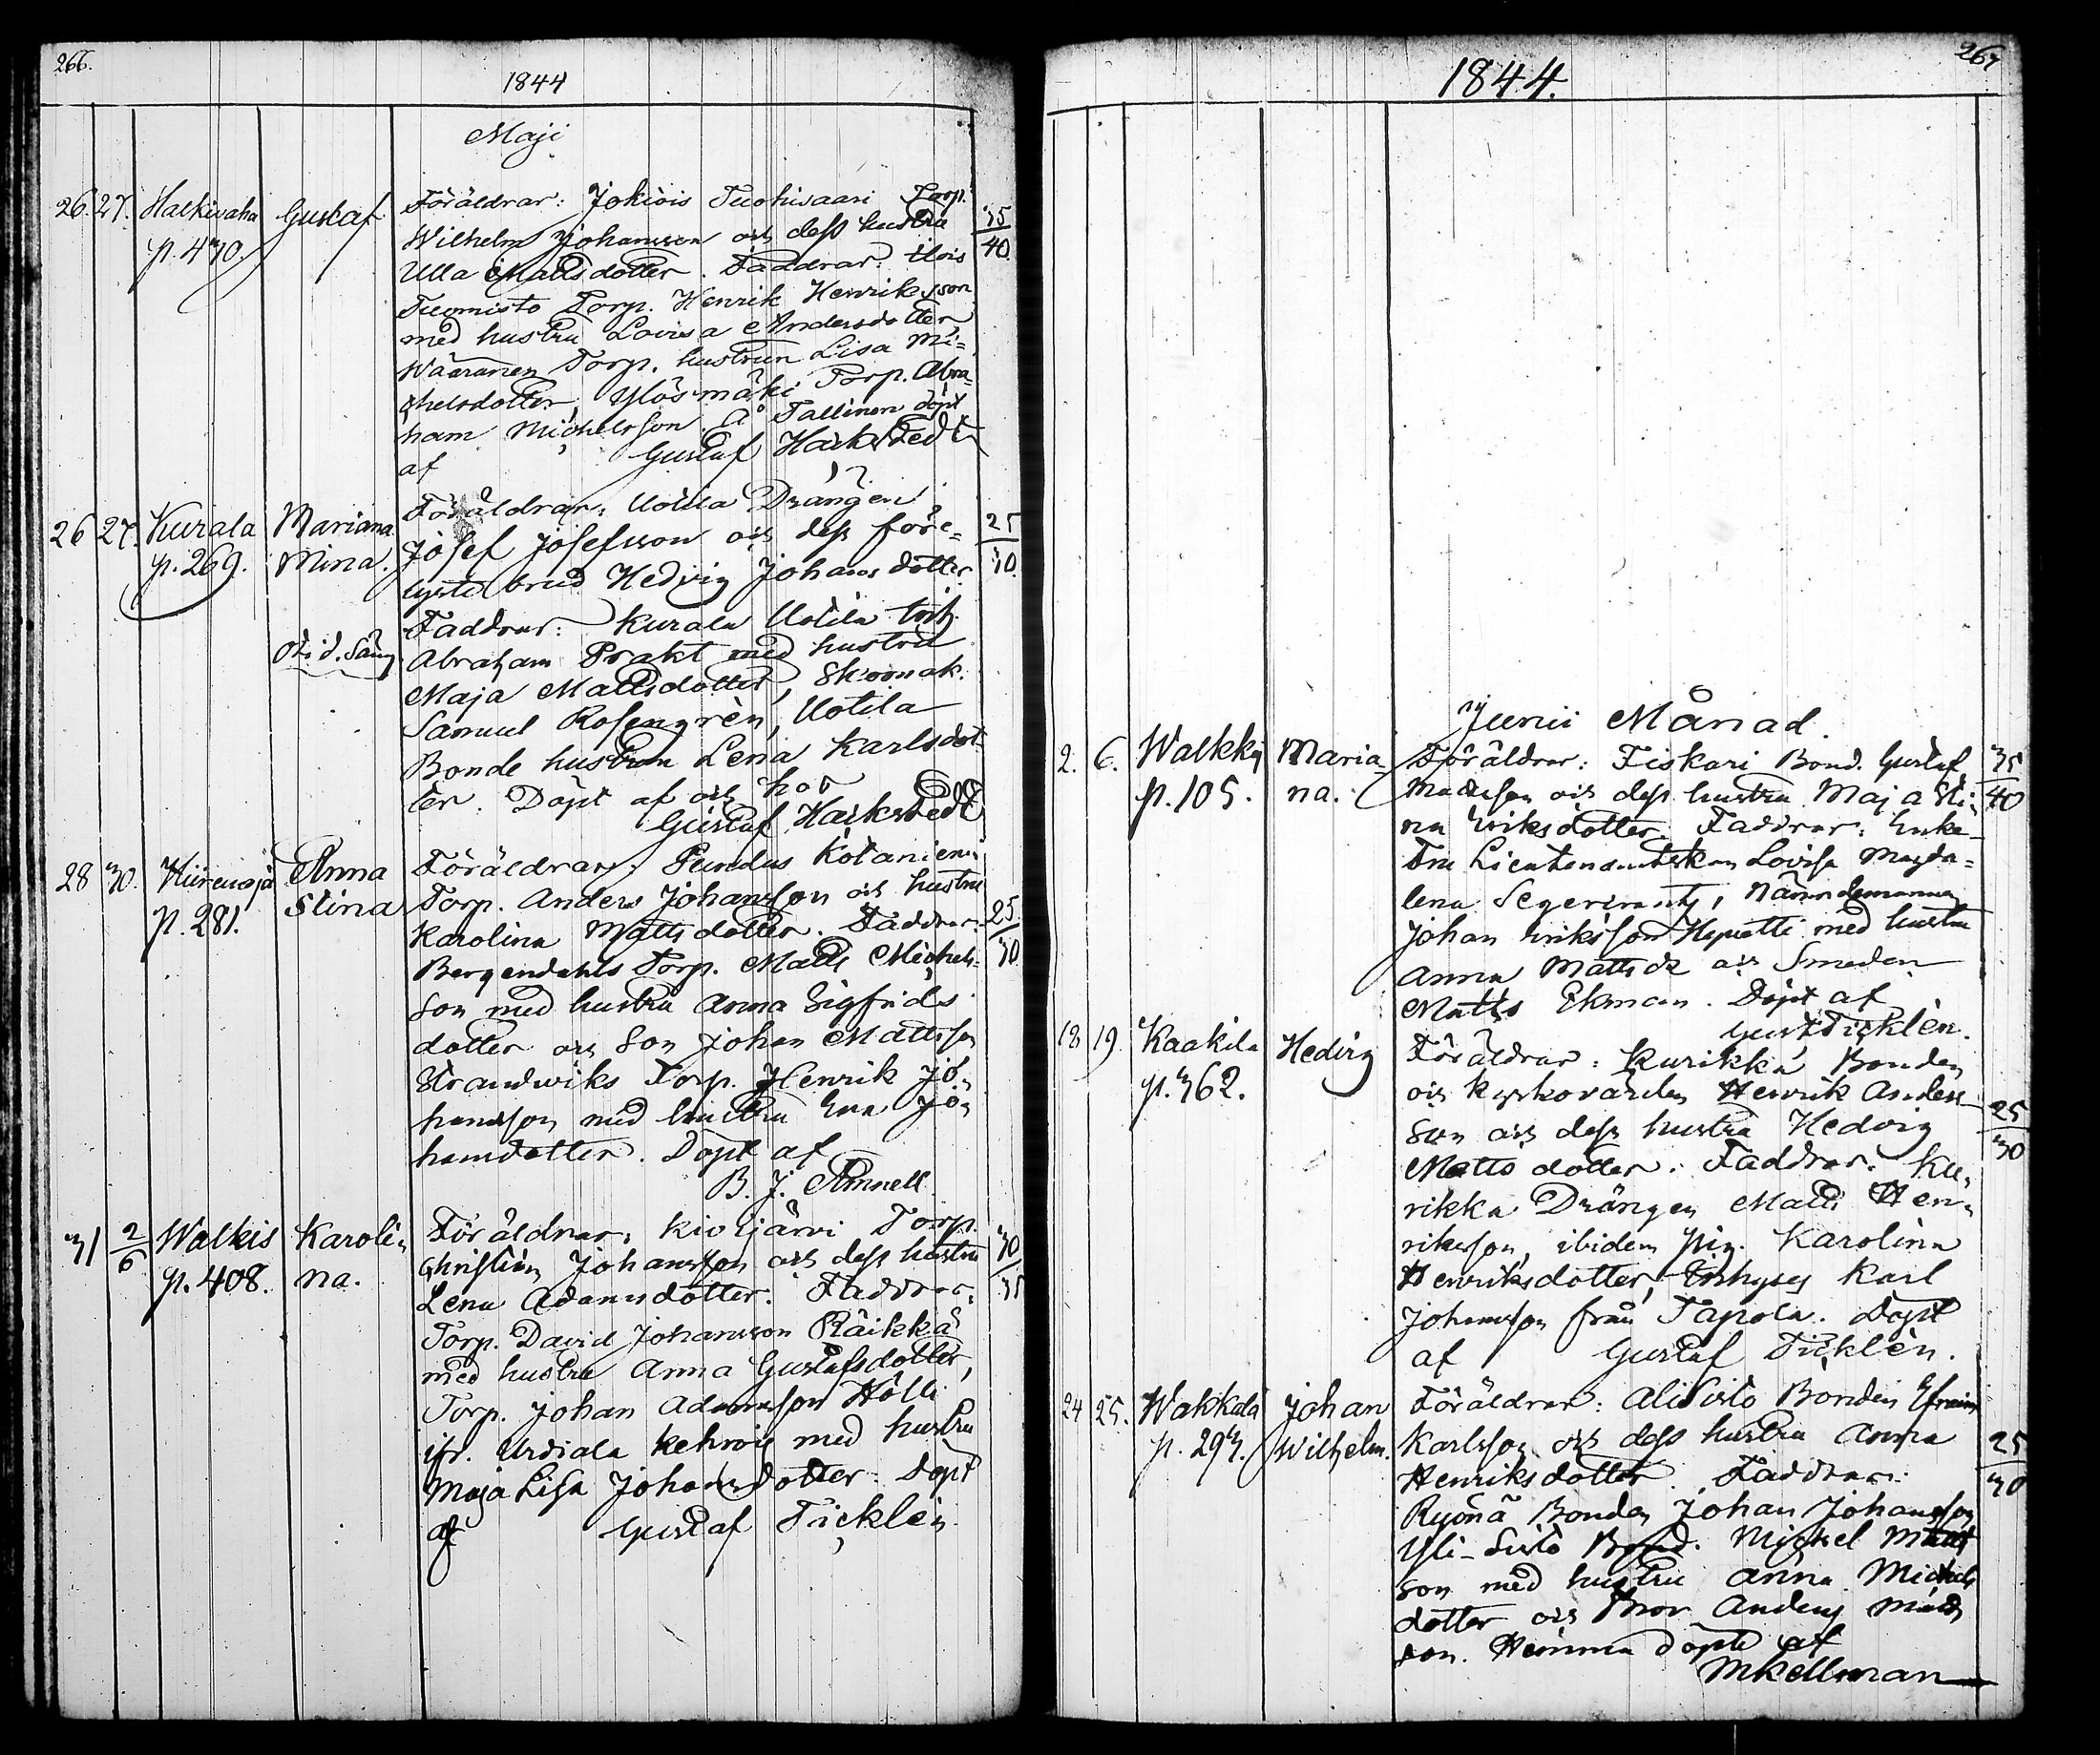 266.
1844
Maji
26. 27. Halkivaha Gustaf Föräldrar: Jokiois Tuohisaari Torp. 35
p. 430. Wilhelm Johansson och dess hustru 40.
Ulla Mattsdotter. Faddrar:
Tuomisto Torp. Henrik Henriksson
med hustru Lovisa Andersdotter
Wääränen Torp. hustrun Lisa Mi=
chelsdotter, Ylösmäki Torp. Abra=
ham Michelsson. Å Tallinen döpt
af Gustaf Harkstedt
26 27. Kurala Mariana Föräldrar: Uotila Drängen 25
p. 269. Mina. Josef Josefsson och dess före= 30.
lyste brud Hedvig Johansdotter.
Faddrar: Kurala Uotila
Abraham Prakt med hustru
Maja Mattsdotter, Skoomak.
Samuel Rosengrèn, Uotila
Bonde hustrun Lena Karlsdot=
ter. Döpt af och hos
Gustaf Harkstedt
28 30. Hiirenoja Anna Föräldrar: Pundus Kotaniemi
p. 281. Stina Torp. Anders Johansson och hustru 25.
Karolina Mattsdotter. Faddrar: 30
Bergendahls Torp. Matts Michels=
son med hustru Anna Sigfrids
dotter och Son Johan Mattsson
Strandwiks Torp. Henrik Jo=
hansson med hustru Eva Jo=
hansdotter. Döpt af
B. J. Amnell
31 2/6 Walkis Karoli= Föräldrar: Kiviijärvi Torp. 30
p. 408. na. Christian Johansson och dess hustru 35
Lena Adamsdotter. Faddrar:
Torp. David Johansson Räikkä
med hustru Anna Gustafsdotter,
Torp. Johan Adamsson Hölli
ifr. Urdiala Kehrois med hustru
Maja Lisa Johansdotter. Döpt
af Gustaf Ticklén
267
1844.
Junii Månad.
2. 6. Walkky Maria= Föräldrar: Fiskari Bond. Gustaf 35
p. 105. na. Mattsson och dess hustru Maja Sti= 40
na Eriksdotter. Faddrar: Enke=
Fru Lieutenantskan Lovisa Magda=
lena Segercrantz, Nämndemannen
Johan Eriksson Hepatti med hustru
Anna Mattsdr och Smeden
Matts Ekman. Döpt af
Gust Ticklén.
18 19. Kaakila Hedvig Föräldrar: Kurikka Bonden
p. 362. och kyrkovärden Henrik Anders= 25
son och dess hustru Hedvig 30
Mattsdotter. Faddrar. Ku=
rikka Drängen Matts Hen=
riksson, ibidem Pig. Karolina
Henriksdotter, Inhyses Karl
Johansson från Tapola. Döpt
af Gustaf Ticklén.
24 25. Wakkala Johan Föräldrar: Ali Sisto Bonden Efraim
p. 293. Wilhelm. Karlsson och dess hustru Anna 25
Henriksdotter. Faddrar: 30
Ryönä Bonden Johan Johansson
Yli-Sisto Bond. Michel Matts
son med hustru Anna Michels
dotter och Bror Anders Matts
son. Hemma döpte af
MKellman